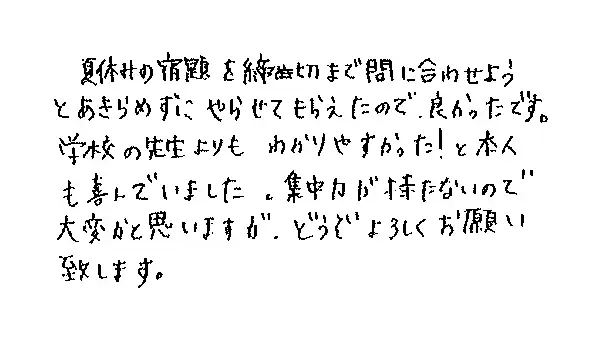 夏休みの宿題を締め切まで間に合わせよう
とあきらめずに、やらせてもらえたので、良かったです。
学校の先生よりも わかりやすかった!と本人
も喜んでいました。集中力が持たないので
大変かと思いますが、どうぞよろしくお願い
致します。